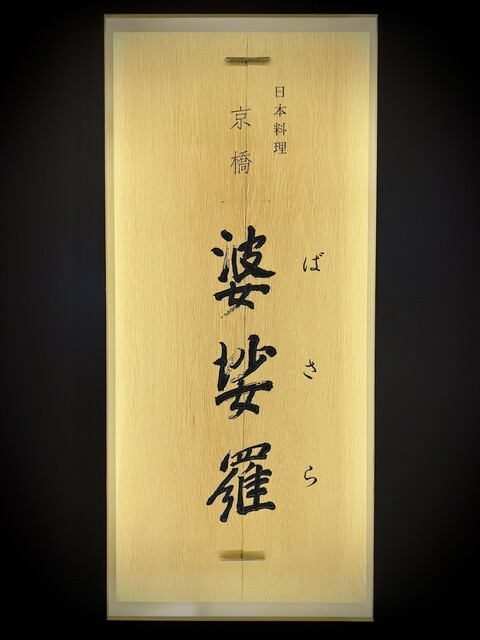 日本料理
京橋
婆娑羅
ばさら